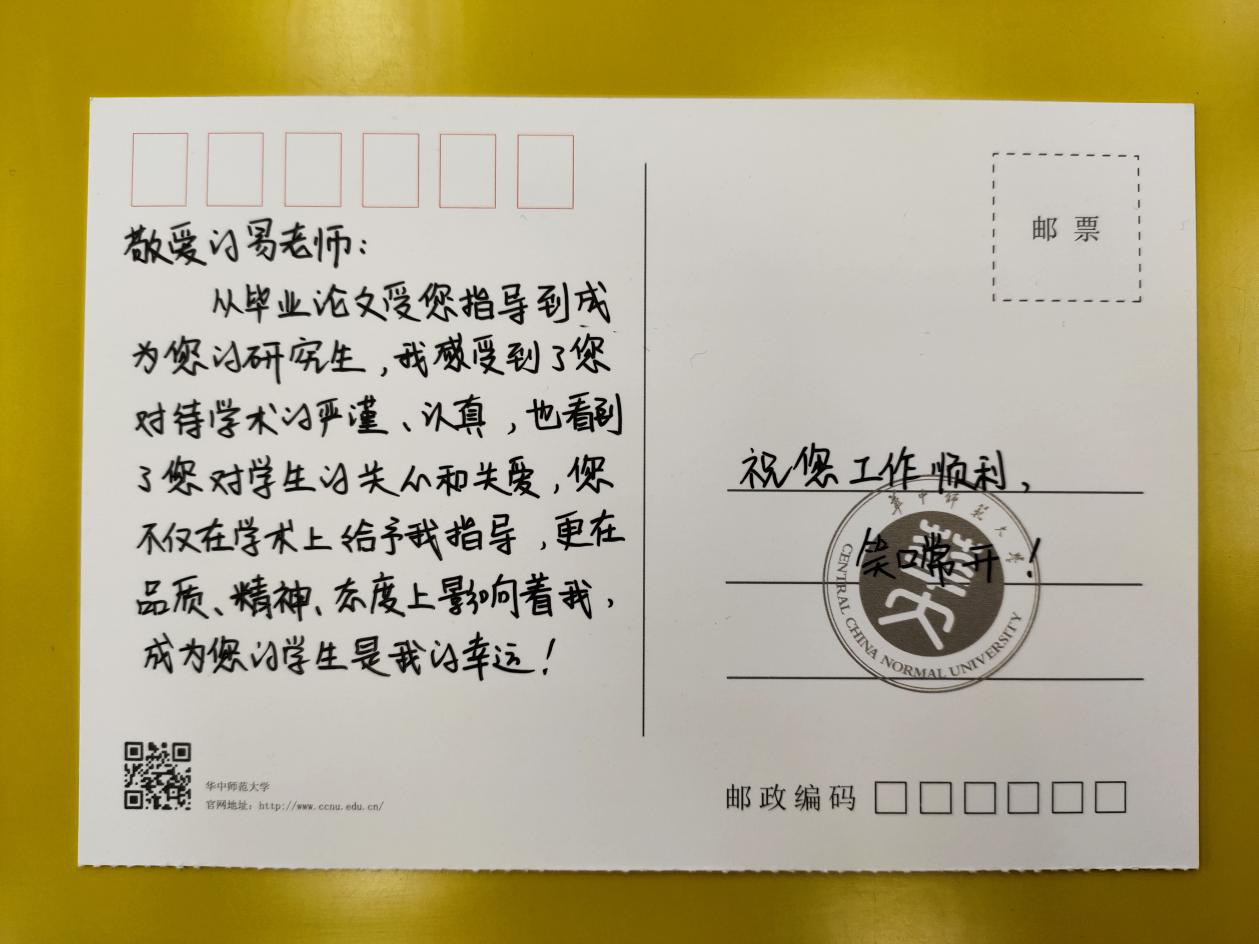 敬爱的易老师：
从毕业论文受您指导到成
为您的研究生，我感受到了您
对待学术的严谨、认真，也看到
了您对学生的关心和关爱，您
不仅在学术上给予我指导，更在
品质、精神、态度上影响着我，
成为您的学生是我的幸运！
华中师范大学
官网地址：http://www.ccnu.edu.cn/
邮票
祝您工作顺利，
笑口常开！
華中師範大學
CENTRAL CHINA NORMAL UNIVERSITY
邮政编码